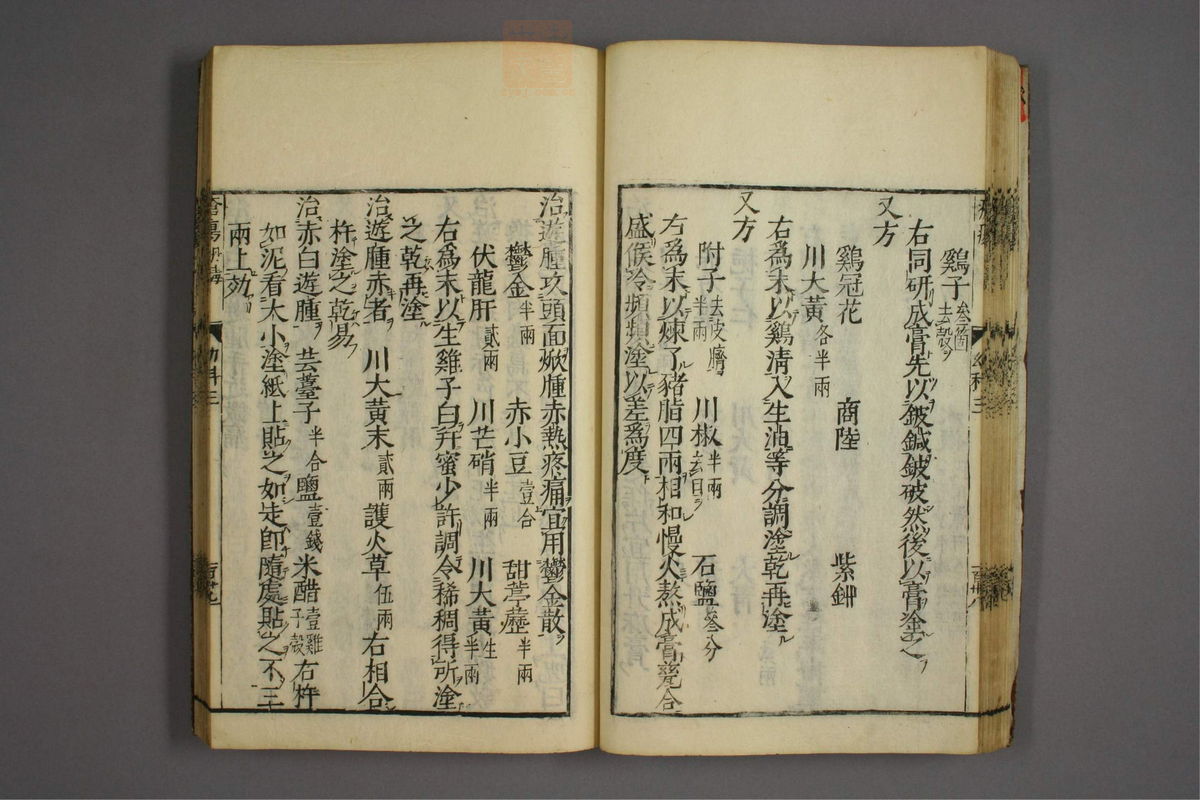 鷄子叁箇去殼
右同研成膏先以鈹鍼鈹破然後以膏塗之
又方
鷄冠花 商陸 紫鉚
川大黃各半兩
右爲末以鷄淸入生油等分調塗乾再塗
又方
附子半兩去皮臍 川椒半兩去目 石鹽叁分
右爲末以煉了豬脂四兩相和慢火熬成膏甆合
盛候冷頻頻塗以差爲度
治遊腫攻頭面焮腫赤熱疼痛宜用鬱金散
鬱金半兩 赤小豆壹合 甜葶藶半兩
伏龍肝貳兩 川芒硝半兩 川大黃生半兩
右爲末以生雞子白幷蜜少許調令稀稠得所塗
之乾再塗
治遊腫赤者 川大黃末貳兩 護火草伍兩右相合
杵塗之乾易
治赤白遊腫 芸薹子半合鹽壹錢米醋壹雞子殼右杵
如泥看大小塗紙上貼之如走即隨處貼之不三
兩上効
幼科三